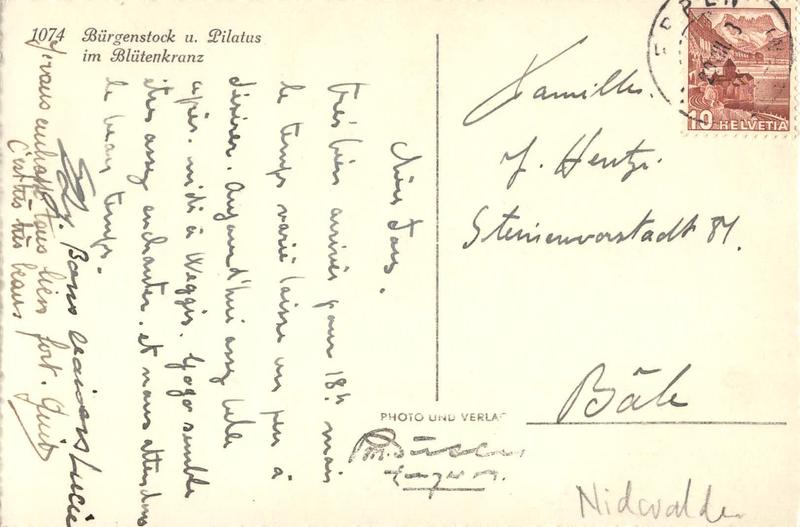 1074 Bürgenstock u. Pilatus
im Blütenkranz
Chers tous.
très bien arrivés pour 18h mais
le temps varié laisse un peu à
désirer. Aujourd'hui assez belle
après-midi à Weggis. Gogo semble
être assez enchantée. et nous attendons
le beau temps.
Bons baisers Lucie
Je vous embrasse tous bien fort.
C'est très très beau
HELVETIA
10
Familles.
J. Hentzi.
Steinenvorstadt 81.
Bâle
PHOTO UND VERLAG
Nidwalden